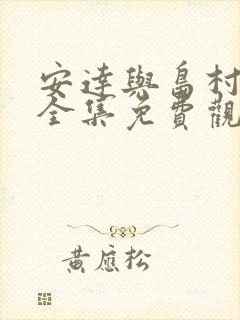 安達與島村
全集免費觀
黃應松